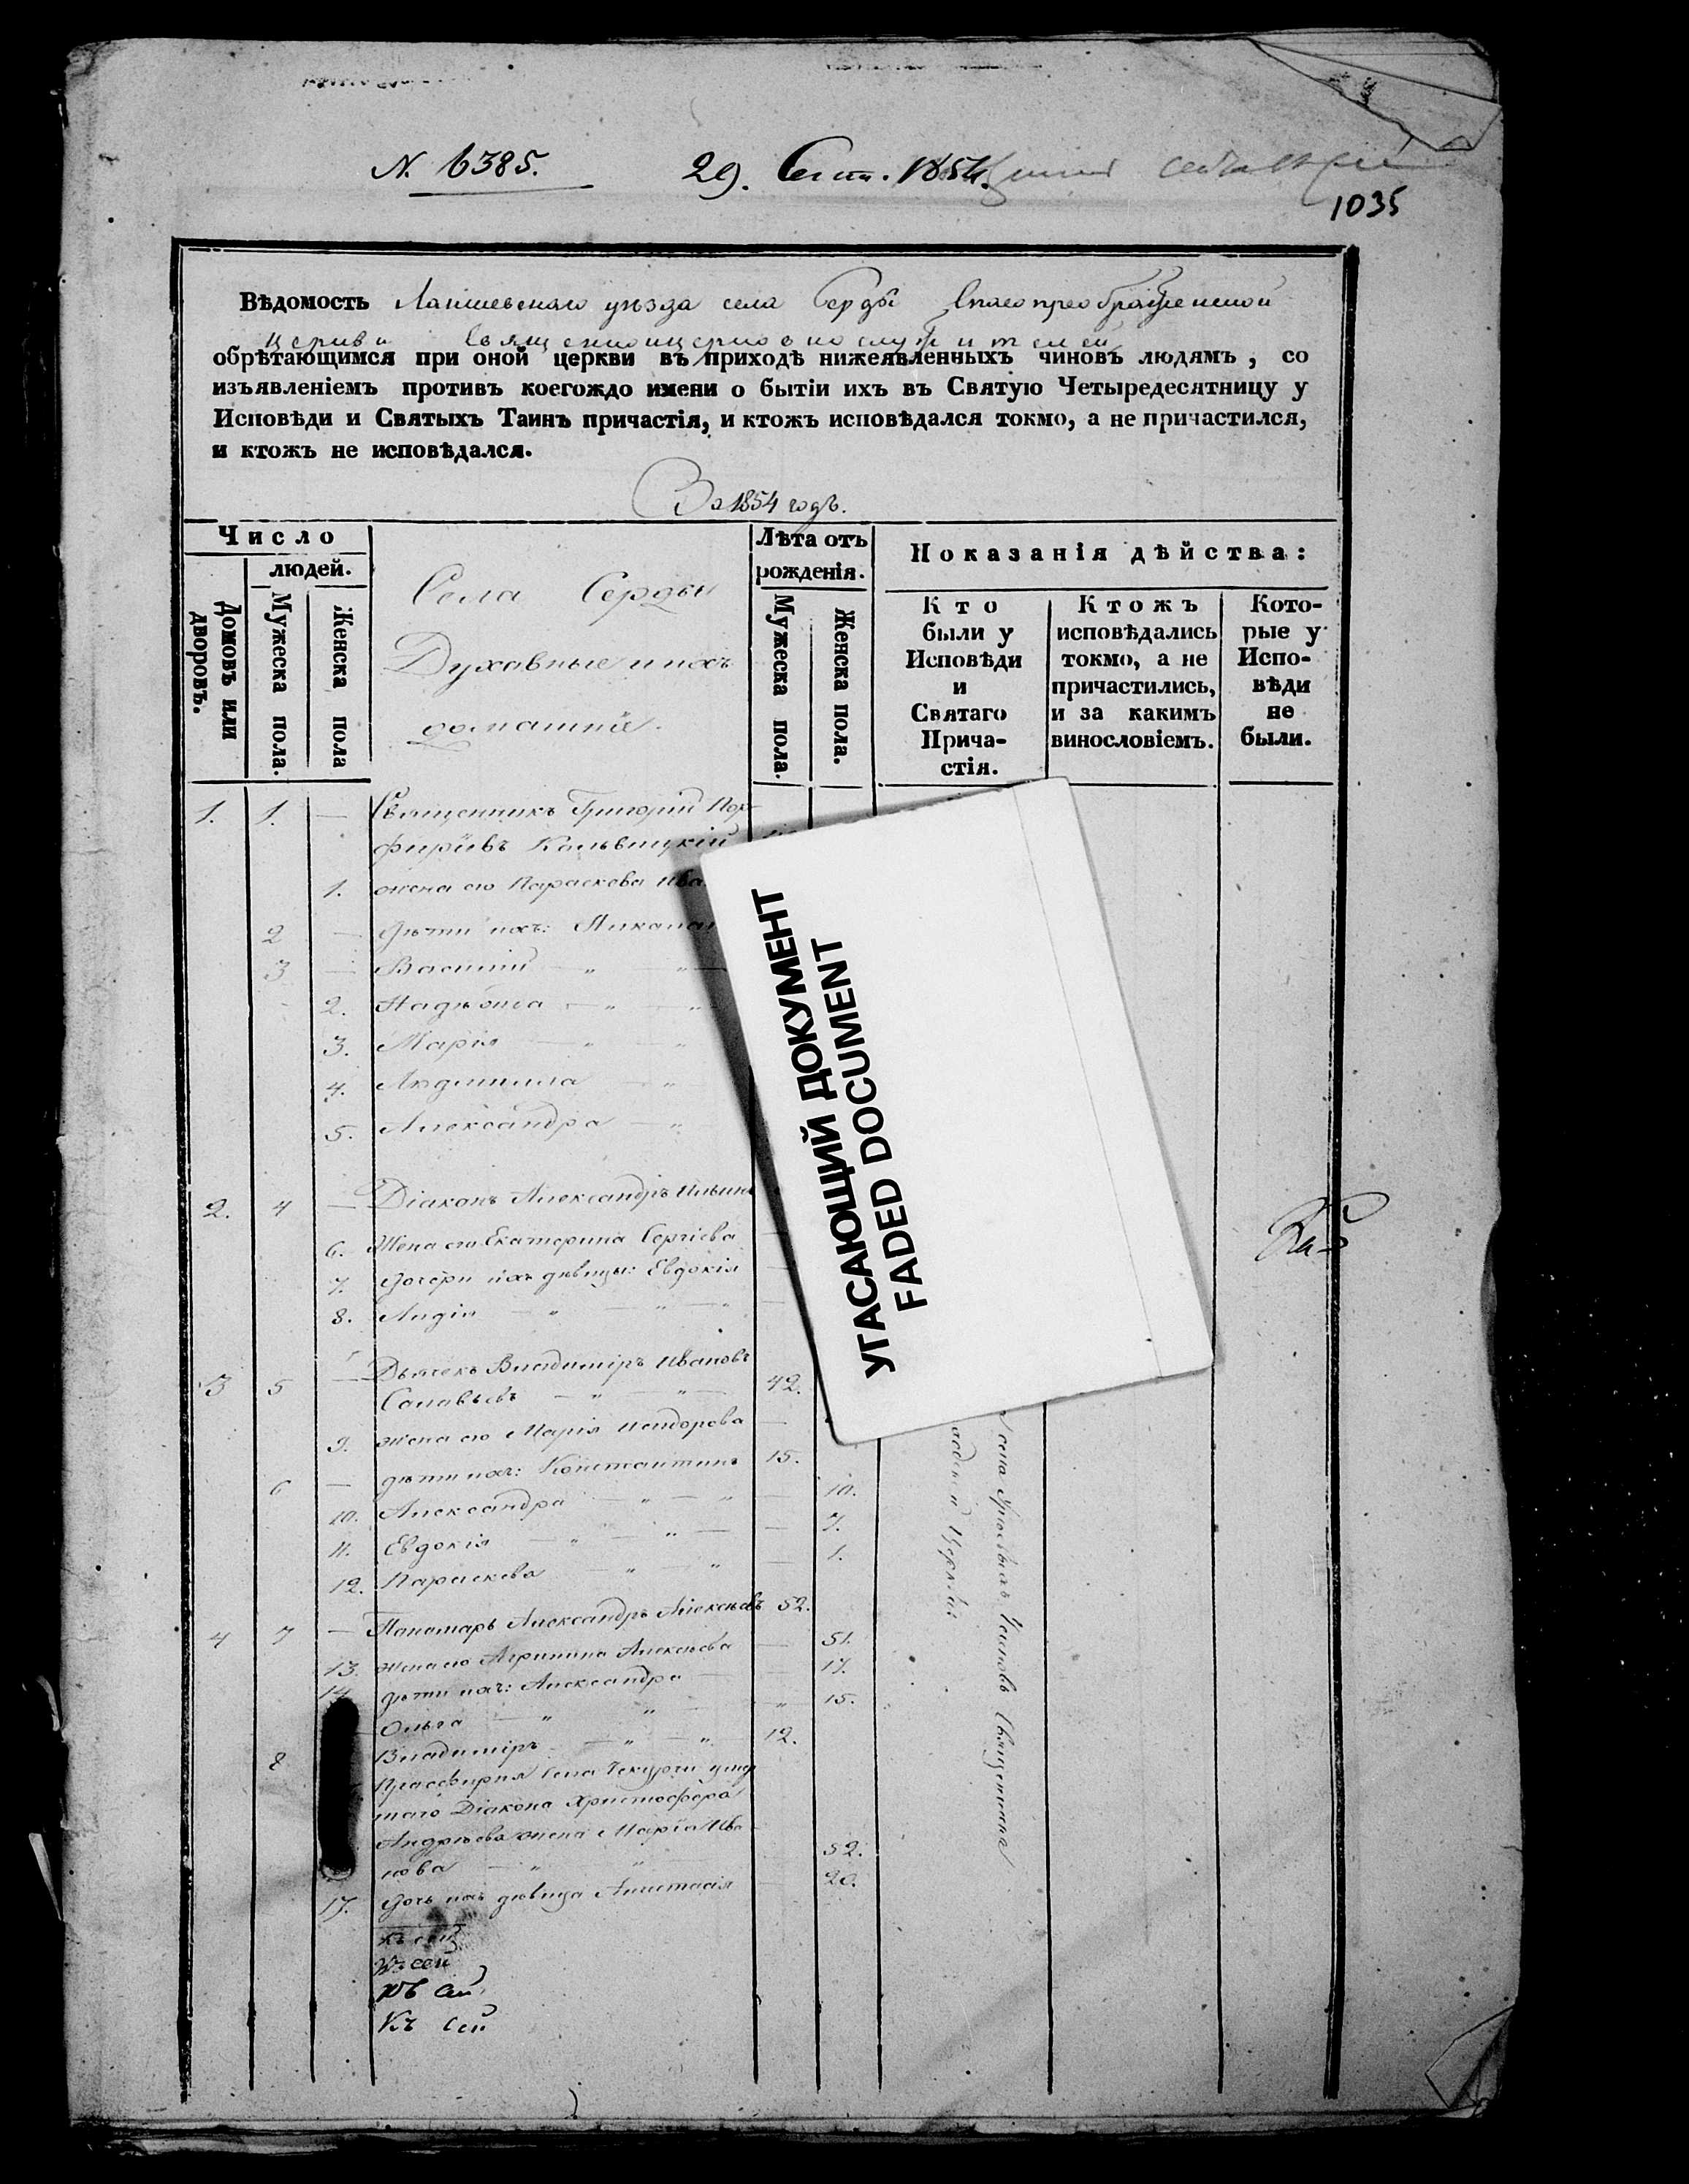 N. 6385. 29. Сент. 1854.
1035
Вѣдомость Лаишевскаго уѣзда села Серды Спасопреображенской
церкви Священноцерковнослужителей
обрѣтающимся при оной церкви въ приходѣ нижеявленныхъ чиновъ людямъ, со
изъявленіемъ противъ коегождо имени о бытіи ихъ въ Святую Четыредесятницу у
Исповѣди и Святыхъ Таинъ причастія, и ктожъ исповѣдался токмо, а не причастился,
и ктожъ не исповѣдался.
За 1854 годъ.
Число
людей.
Домовъ или дворовъ.
Мужеска пола.
Женска пола
Села Серды
Духовные и ихъ
домашніе.
Лѣта отъ
рожденія.
Мужеска пола.
Женска пола.
Показанія дѣйства:
Кто
были у
Исповѣди
и
Святаго
Прича-
стія.
Ктожъ
исповѣдались
токмо, а не
причастились,
и за какимъ
винословіемъ.
Кото-
рые у
Испо-
вѣди
не
были.
1. 1. — Священникъ Григорій Пор-
фирьевъ
1. жена его Параскева Ива
2 — дѣти ихъ:
3 — Василій — „ — „ —
2. Надежда — „ — „
3. Марія — „ — „
4. Людмилла — „
5. Александра — „
УГАСАЮЩИЙ ДОКУМЕНТ
FADED DOCUMENT
2. 4 — Діаконъ Александръ Ильинъ
6. Жена его Екатерина Сергіева —
7. дочери ихъ дѣвицы: Евдокія —
8. Лидія — „ — „ — „ —
3 5 — Дьячекъ Владиміръ Ивановъ
Соловьевъ — „ — „ — 42.
9. жена его Марія Исидорова —
6 — дѣти ихъ: Константинъ 15.
10. Александра — „ — „ — 10.
11. Евдокія — „ — „ — — 7.
12. Параскева — „ — „ — 1.
4 7 — Пономарь Александръ Алексѣевъ 52.
13. жена его Агрипина Алексѣева — 51.
14. дѣти ихъ: Александра — — 17.
Ольга — „ — „ — „ 15.
8 Владиміръ — „ — „ 12.
Просфирня села Чекурчи умер
шаго Діакона Христофора
Андреева жена Марія Ива
нова — „ — „ 52.
17. дочь ихъ дѣвица Анастасія 20.
села Урюевыхъ Челновъ Священника
церкви
къ сей
къ сей
къ сей
Къ сей